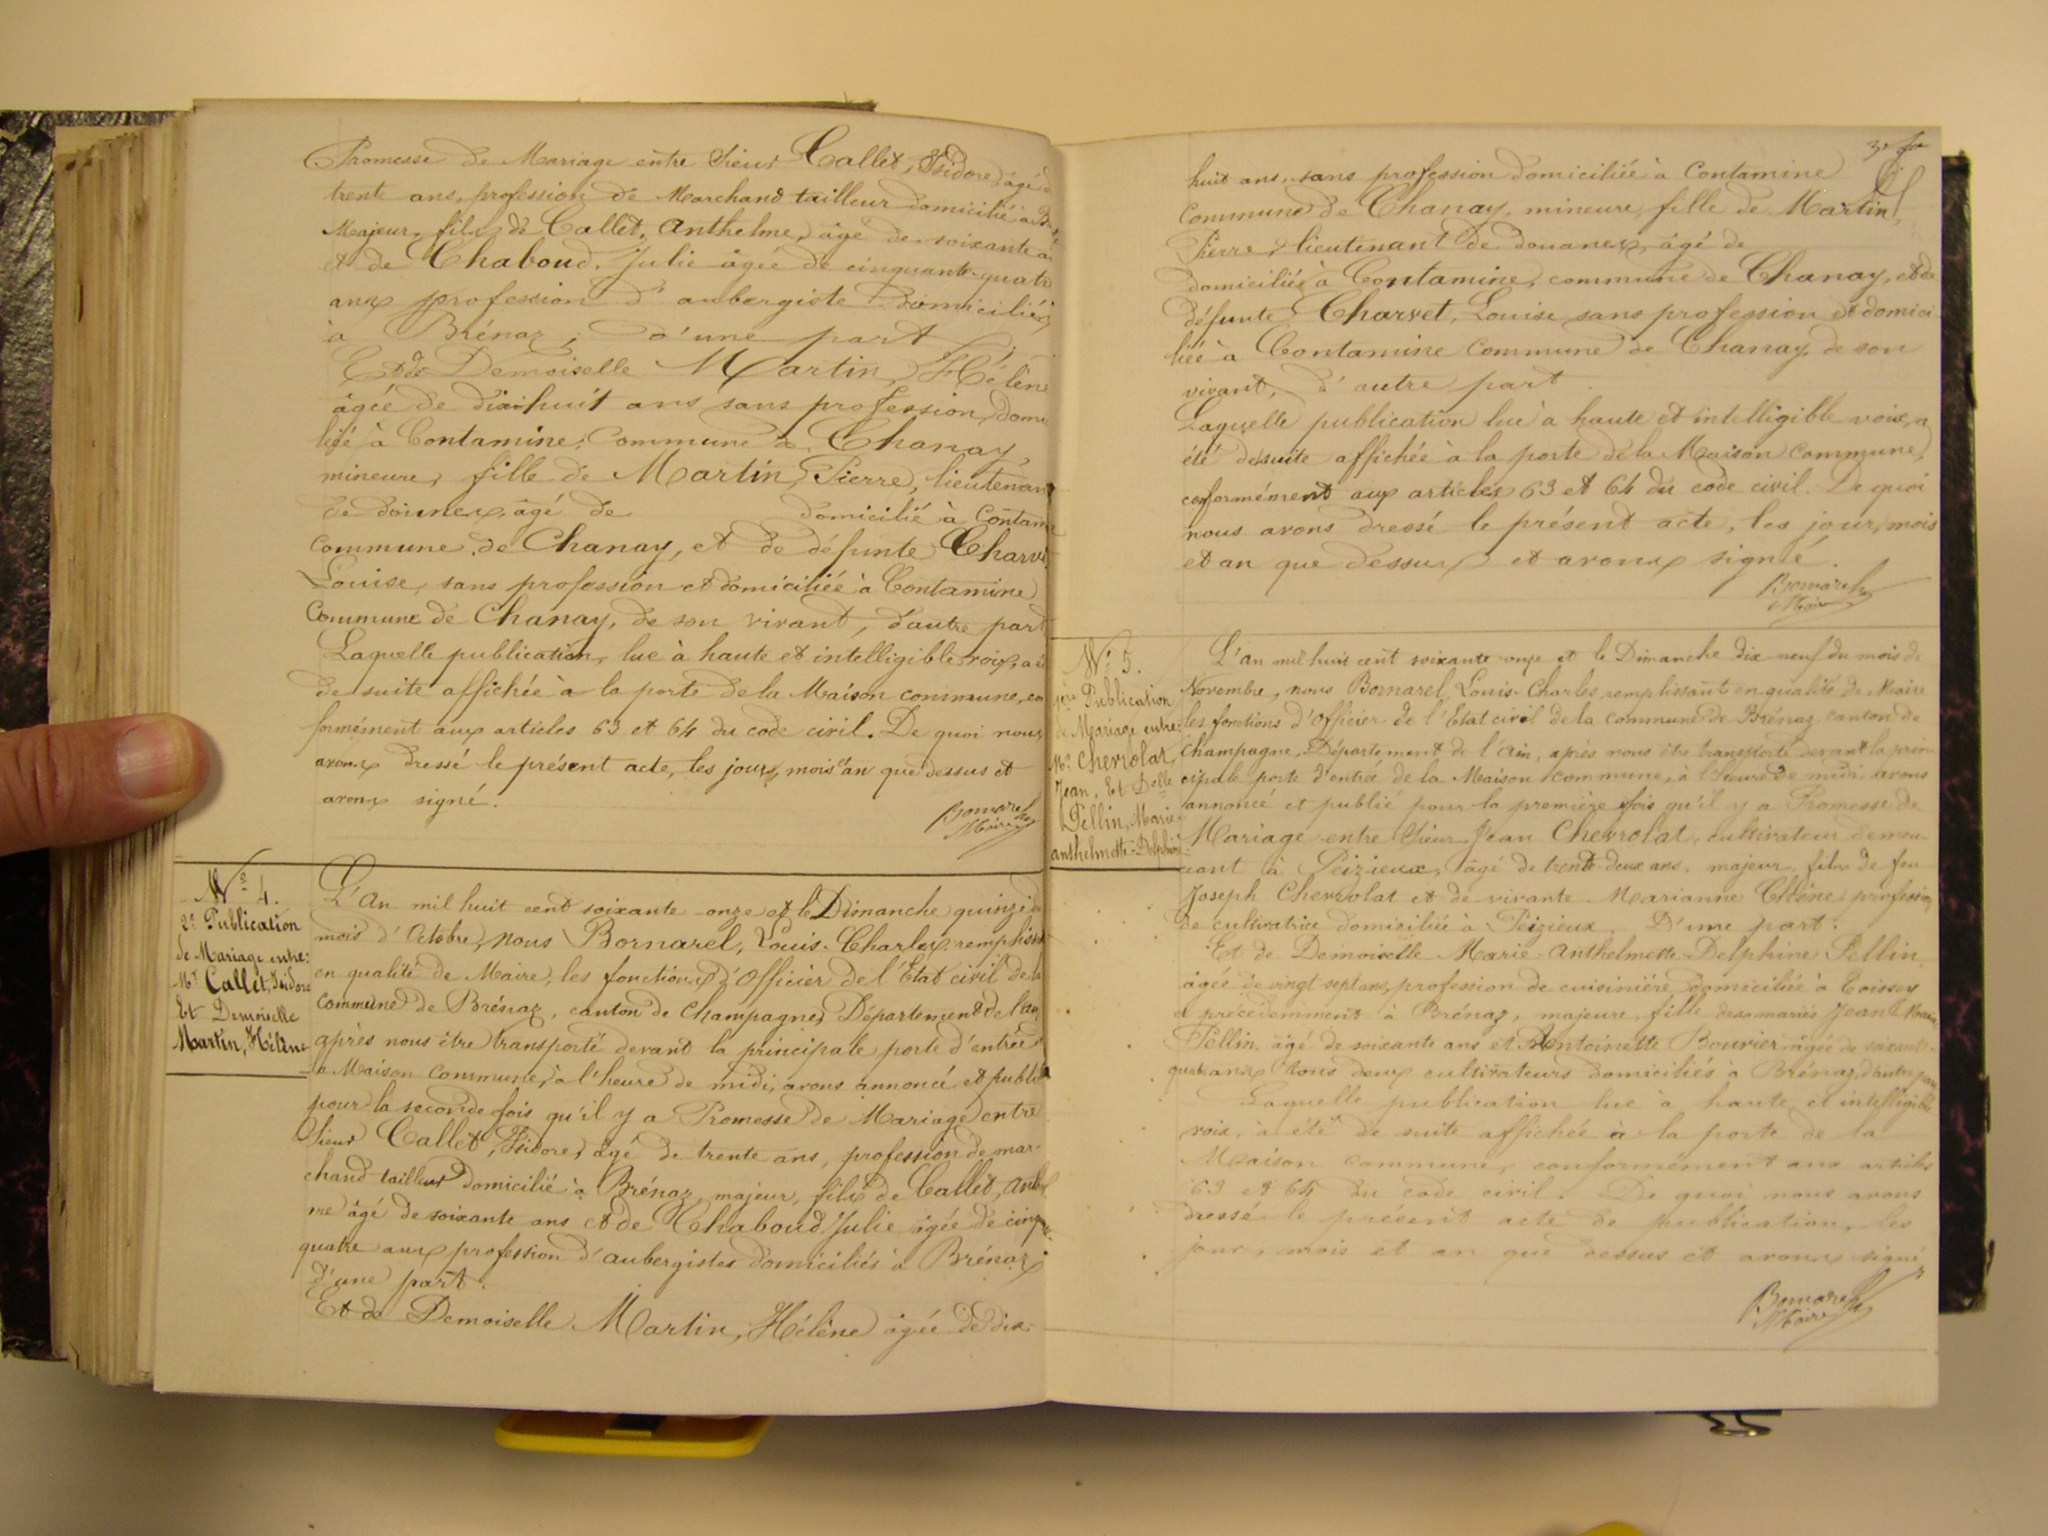 Promesse de Mariage entre Sieur Callet, Isidore, âgé de
trente ans, profession de Marchand tailleur domicilié à
Majeur, fils de Callet, Anthelme, âgé de soixante a
et de Chaboud, Julie âgée de cinquante-quatre
ans profession d'aubergiste domiciliés
à Brénaz, d'une part
Et de Demoiselle Martin, Hélène
âgée de dix-huit ans sans profession, domi
liée à Contamine, Commune de Chanay,
mineure, fille de Martin, Pierre, lieutenan
de douanes, âgé de domicilié à Contami
commune de Chanay, et de défunte Charve
Louise, sans profession et domiciliée à Contamine
Commune de Chanay, de son vivant, d'autre part
Laquelle publication, lue à haute et intelligible voix, a é
de suite affichée à la porte de la Maison commune, con
formément aux articles 63 et 64 du code civil. De quoi nous
avons dressé le présent acte, les jour, mois et an que dessus et
avons signé.
Bornarel
Maire
N° 4.
2e Publication
de Mariage entre:
Mr Callet, Isidore
Et Demoiselle
Martin, Hélène
L'An mil huit cent soixante-onze et le Dimanche quinze du
mois d'Octobre, nous Bornarel, Louis-Charles, remplissan
en qualité de Maire, les fonctions d'Officier de l'Etat civil de la
Commune de Brénaz, canton de Champagne, Département de l'ain,
après nous être transporté devant la principale porte d'entrée
a Maison commune, à l'heure de midi, avons annoncé et publié
pour la seconde fois qu'il y a Promesse de Mariage entre
Sieur Callet, Isidore, âgé de trente ans, profession de mar-
chand tailleur domicilié à Brénaz, majeur, fils de Callet, anthel
me âgé de soixante ans et de Chaboud Julie âgée de cinqu
quatre ans profession d'aubergistes domiciliés à Brénaz
d'une part.
Et de Demoiselle Martin, Hélène âgée de dix-
huit ans, sans profession domiciliée à Contamine
Commune de Chanay, mineure, fille de Martin,
Pierre, lieutenant de douanes, âgé de
domicilié à Contamine, commune de Chanay, et de
défunte Charvet, Louise sans profession et domici
liée à Contamine Commune de Chanay, de son
vivant, d'autre part.
Laquelle publication lue à haute et intelligible voix, a
été de suite affichée à la porte de la Maison commune,
conformément aux articles 63 et 64 du code civil. De quoi
nous avons dressé le présent acte, les jour, mois
et an que dessus et avons signé.
Bornarel
Maire
N° 5.
1ère Publication
de Mariage entre:
Mr Chevrolat,
Jean, Et Delle
Pellin, Marie-
anthelmette-Delphine
L'an mil huit cent soixante-onze et le Dimanche dix-neuf du mois de
Novembre, nous Bornarel, Louis-Charles, remplissant en qualité de Maire
les fonctions d'Officier de l'Etat civil de la commune de Brénaz canton de
Champagne, Département de l'Ain, après nous être transporté devant la prin
cipale porte d'entrée de la Maison commune, à l'heure de midi avons
annoncé et publié pour la première fois qu'il y a Promesse de
Mariage entre Sieur Jean Chevrolat, cultivateur demeu-
rant à Peizieux, âgé de trente-deux ans, majeur, fils de feu
Joseph Chevrolat et de vivante Marianne Chêne profession
de cultivatrice domiciliée à Peizieux, D'une part.
Et de Demoiselle Marie-Anthelmette-Delphine Pellin
âgée de vingt sept ans, profession de cuisinière domiciliée à Toissey
précédemment à Brénaz, majeure, fille des mariés Jean
Pellin, âgé de soixante ans et Antoinette Bouvier âgée de soixante-
quatre ans tous deux cultivateurs domiciliés à Brénaz, d'autre part
Laquelle publication lue à haute et intelligible
voix, a été de suite affichée à la porte de la
Maison commune, conformément aux articles
63 et 64 du code civil. De quoi nous avons
dressé le présent acte de publication, les
jour, mois et an que dessus et avons signé
Bornarel
Maire